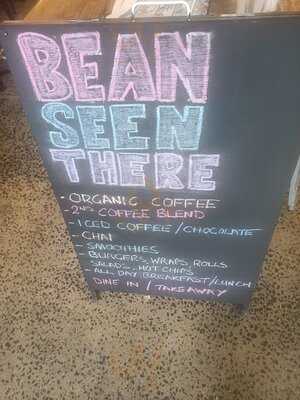 BEAN
SEEN
THERE
- ORGANIC COFFEE
- 2ND COFFEE BLEND
- ICED COFFEE / CHOCOLATE
- CHAI
- SMOOTHIES
- BURGERS, WRAPS, ROLLS
SALADS, HOT CHIPS
- ALL DAY BREAKFAST/LUNCH
DINE IN / TAKEAWAY